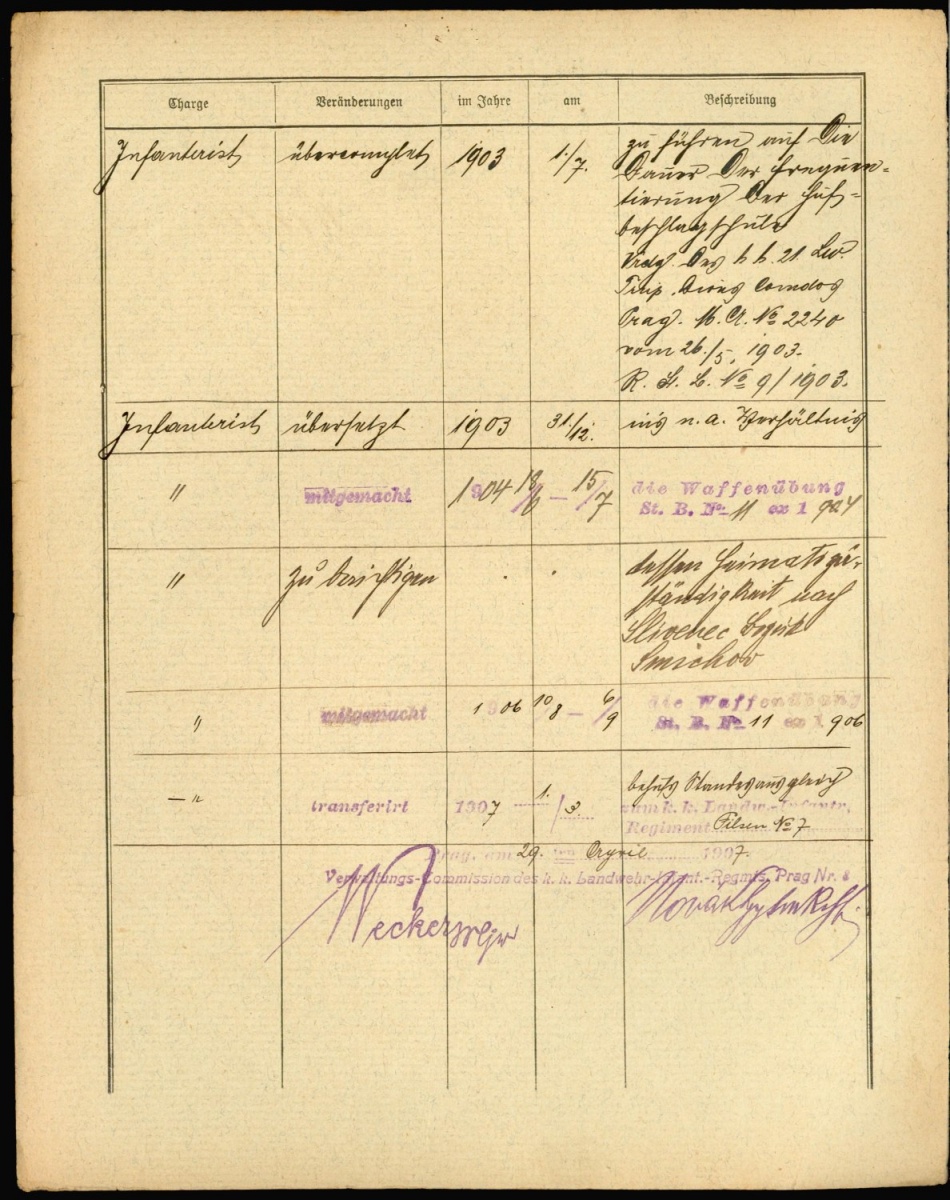 Charge Veränderungen im Jahre am Beschreibung
Infanterist übercomplet 1903 1./7. zu führen auf Die
Dauer Der frequen-
tierung Der Huf-
beschlagschule
Vrdg. Des k. k. 21 Ldw.
Trup. Divis Comdos
Prag. M. A. No 2240
vom 26./5. 1903.
R. St. B. No 9/1903.
Infanterist übersetzt 1903 31./12. ins n. a. Verhältnis
" mitgemacht 1904 18/6 — 15/7 die Waffenübung
St. B. No 11 ex 1904
" zu berichtigen . . dessen Heimatszu-
ständigkeit nach
Slivenec Bezirk
Smichow
" mitgemacht 1906 10/8 — 6/9 die Waffenübung
St. B. No 11 ex 1906
— " transferirt 1907 1./3. behufs Standesausgleich
zum k. k. Landw.-Infantr.
Regiment Pilsen No 7
Prag, am 29. ten April 1907.
Verwaltungs-Commission des k. k. Landwehr-Infant.-Regmts. Prag Nr. 8
Novák